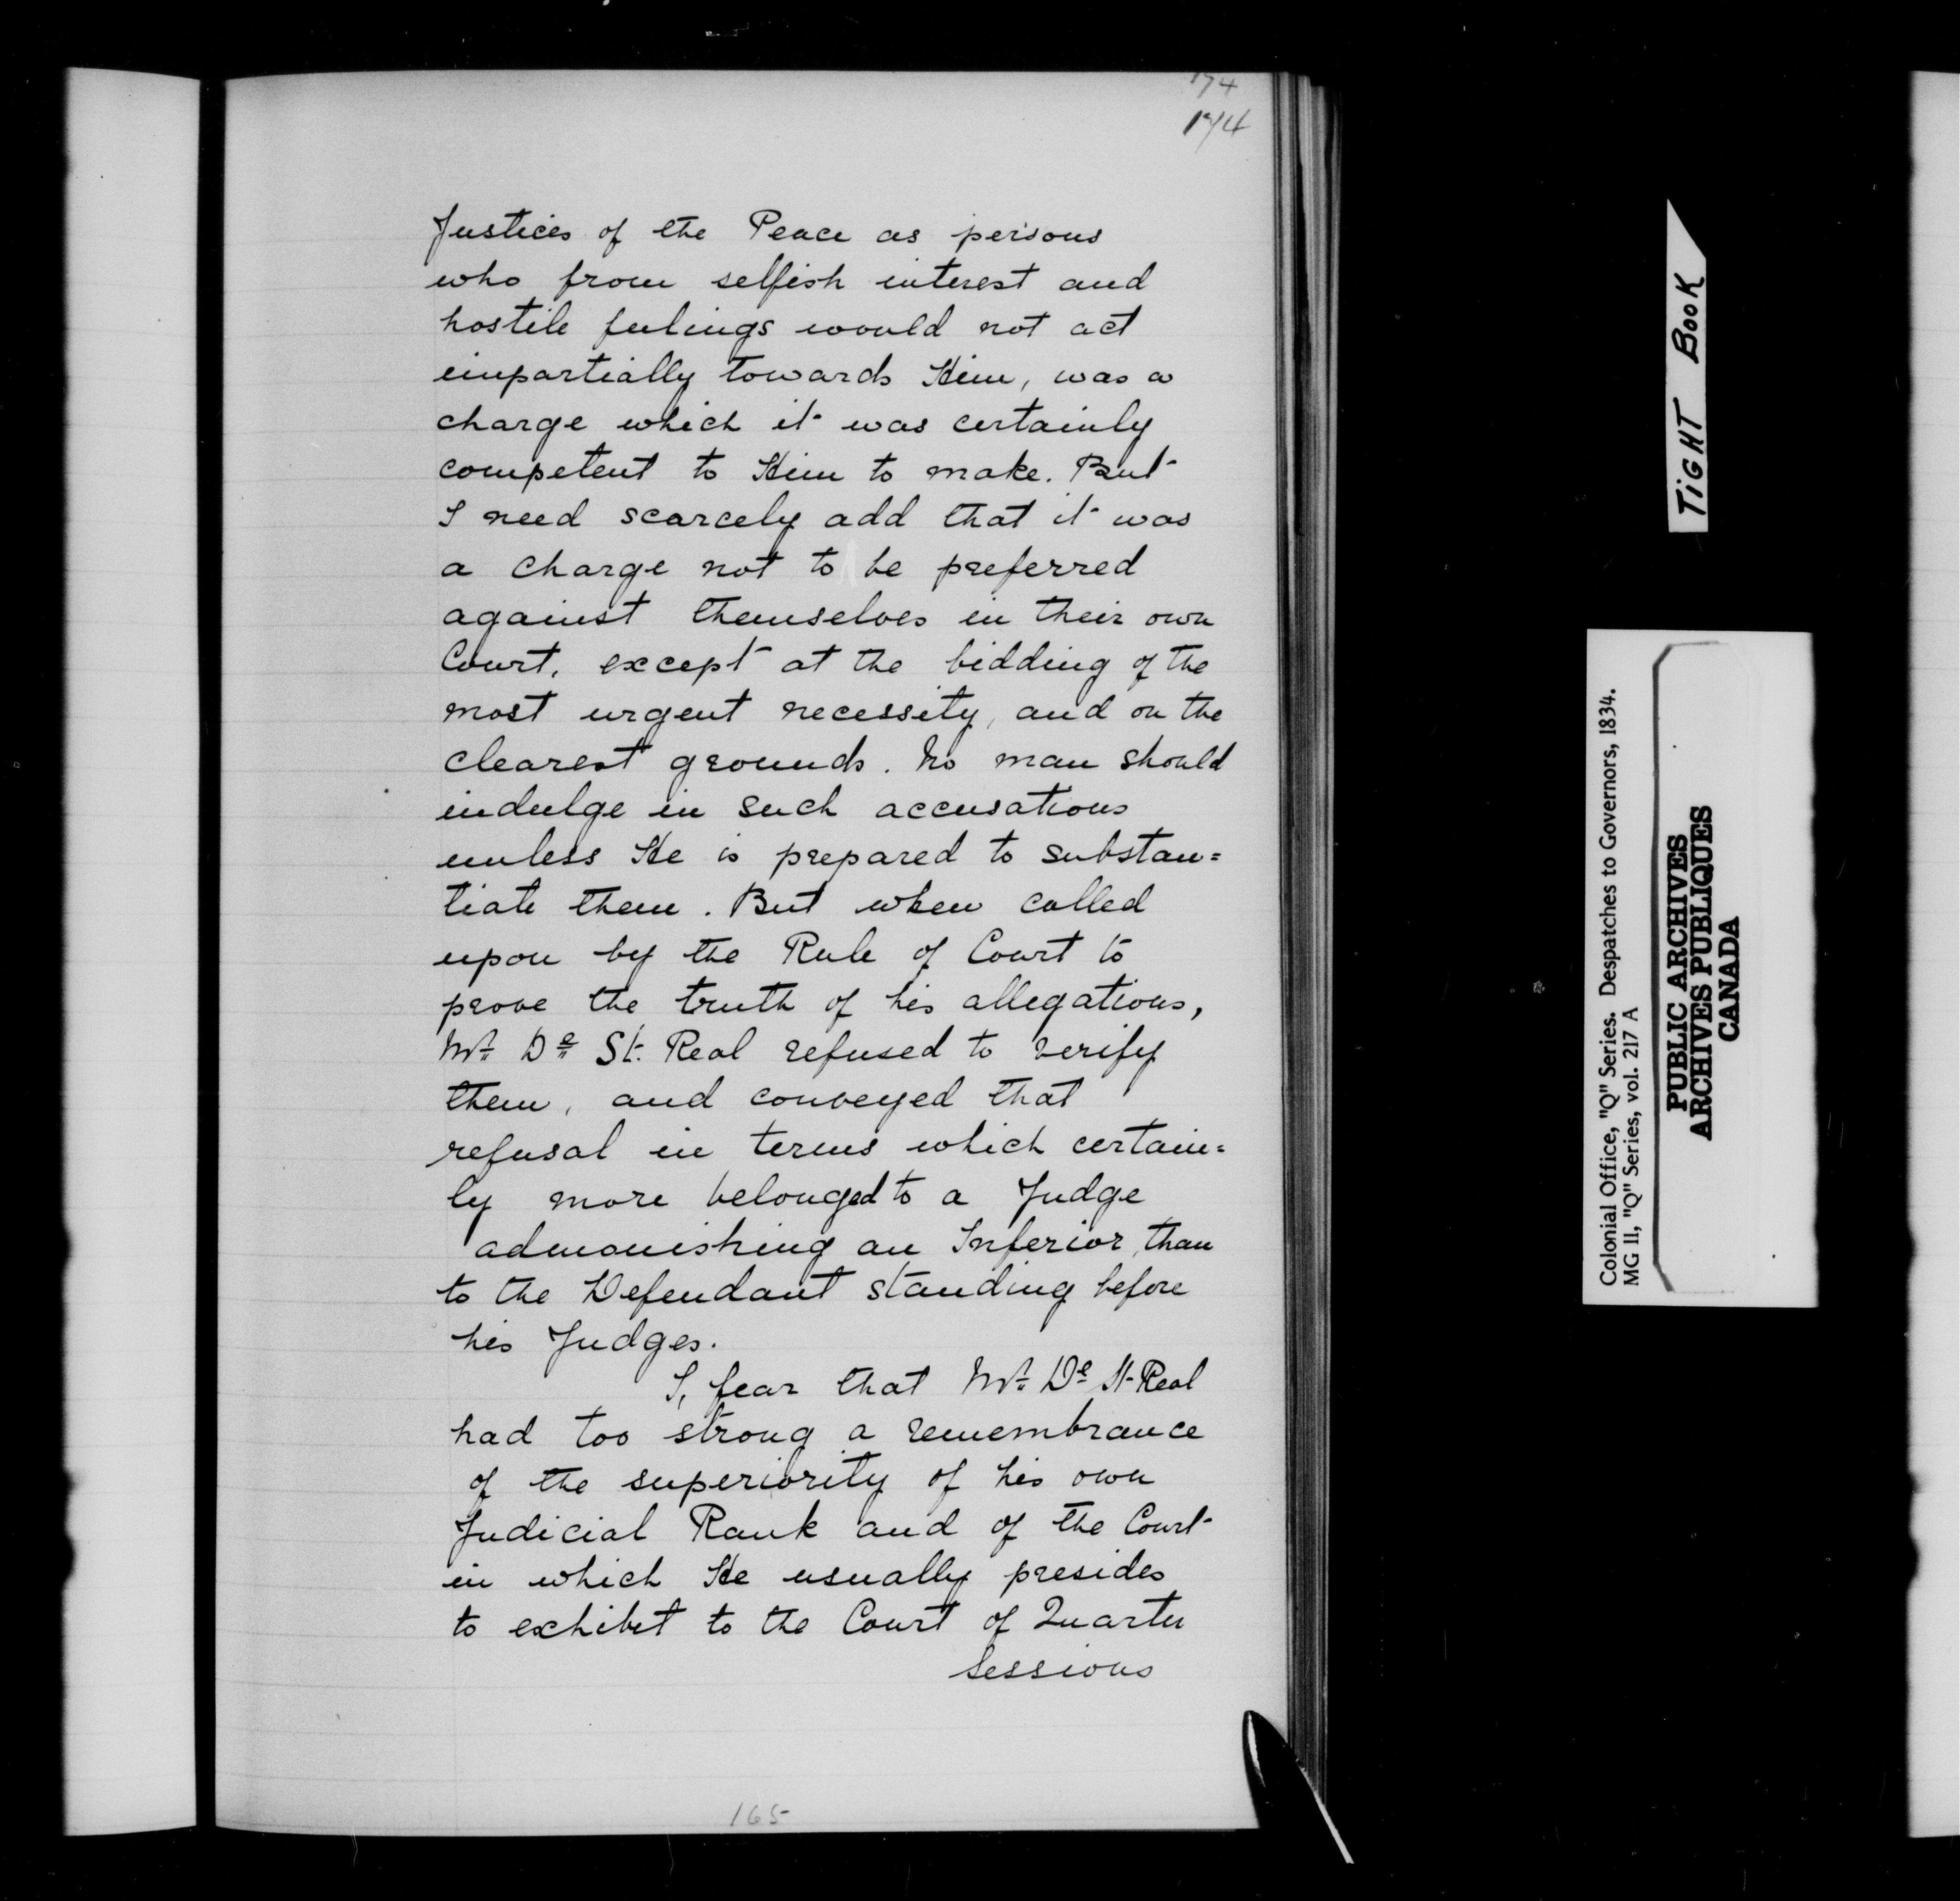 174
174
Justices of the Peace as persons
who from selfish interest and
hostile feelings would not act
impartially towards Him, was a
charge which it was certainly
competent to Him to make. But
I need scarcely add that it was
a charge not to be preferred
against themselves in their own
Court, except at the bidding of the
most urgent necessity, and on the
clearest grounds. No man should
indulge in such accusations
unless He is prepared to substan=
tiate them. But when called
upon by the Rule of Court to
prove the truth of his allegations,
Mr. De St. Real refused to verify
them, and conveyed that
refusal in terms which certain=
ly more belonged to a Judge
admonishing an Inferior, than
to the Defendant standing before
his Judges.
I, fear that Mr. De St. Real
had too strong a remembrance
of the superiority of his own
Judicial Rank and of the Court
in which He usually presides
to exhibit to the Court of Quarter
Sessions
165
TIGHT BOOK
Colonial Office, "Q" Series. Despatches to Governors, 1834.
MG 11, "Q" Series, vol. 217 A
PUBLIC ARCHIVES
ARCHIVES PUBLIQUES
CANADA